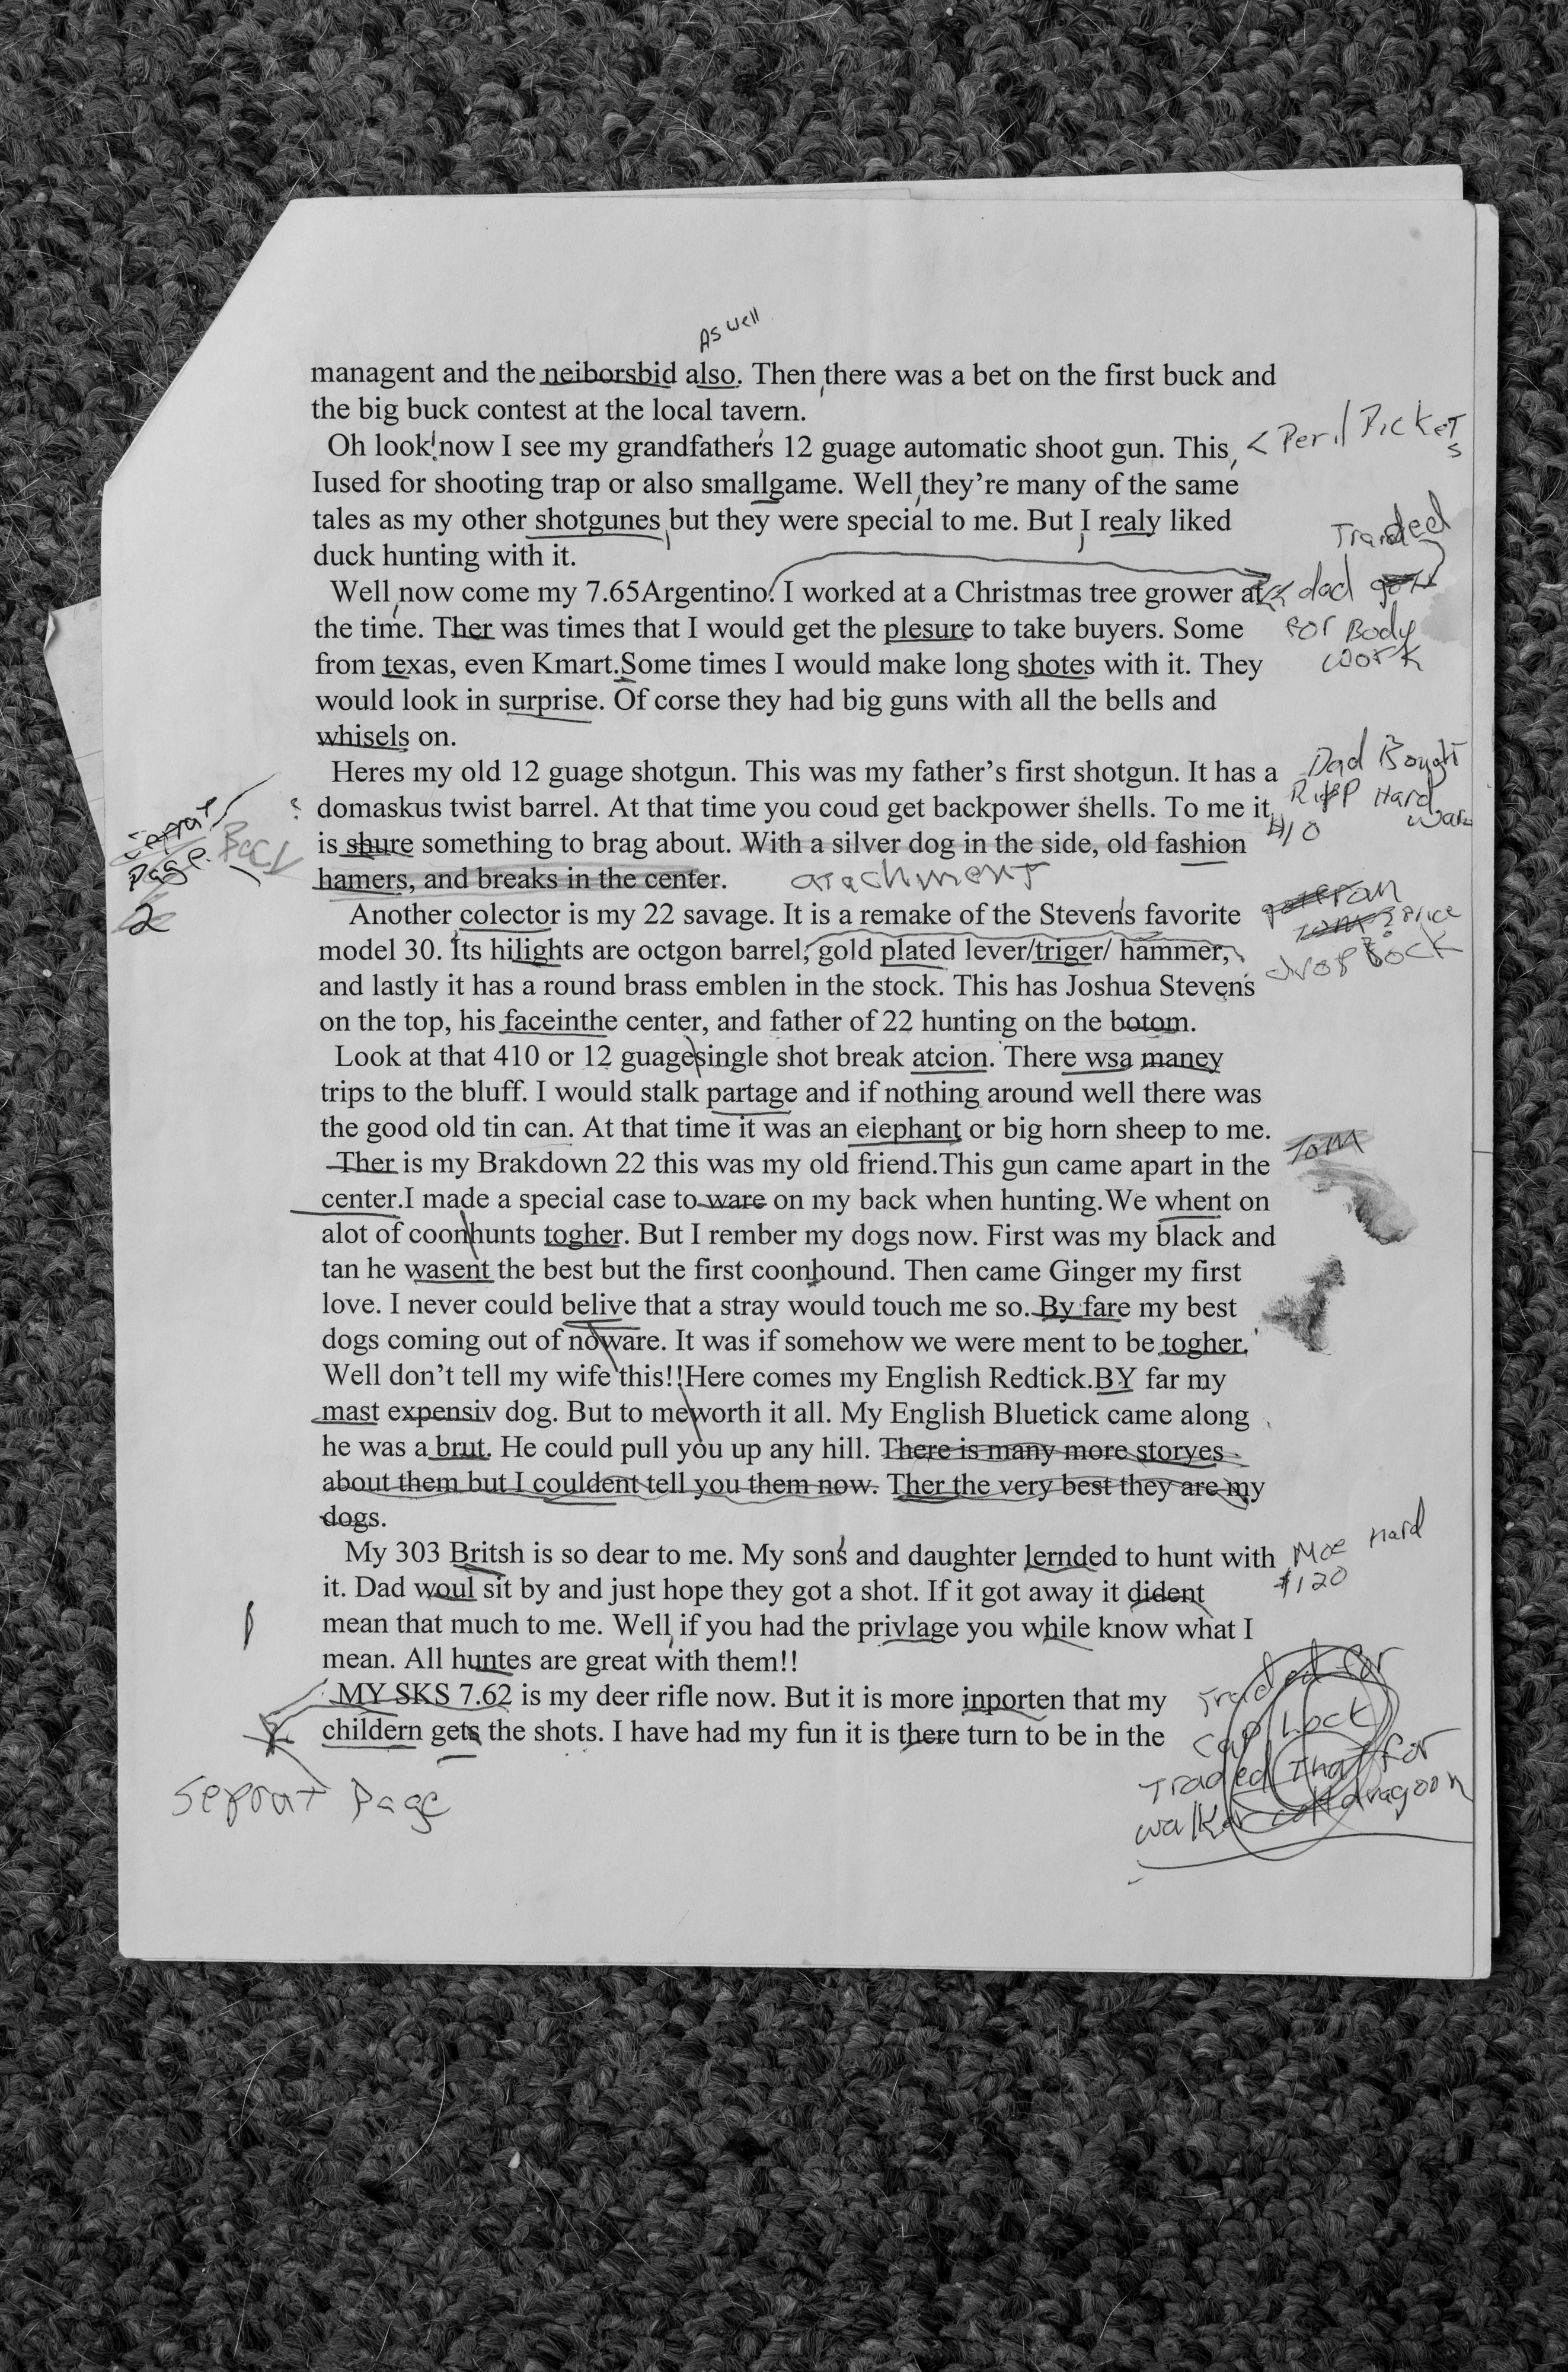 As well
managent and the neiborsbid also. Then, there was a bet on the first buck and
the big buck contest at the local tavern.
Oh look! now I see my grandfather's 12 guage automatic shoot gun. This,
< Peril Picket
s
Iused for shooting trap or also smallgame. Well, they're many of the same
tales as my other shotgunes, but they were special to me. But, I realy liked
Traided
duck hunting with it.
Well, now come my 7.65Argentino. I worked at a Christmas tree grower at
dad gott
the time. Ther was times that I would get the plesure to take buyers. Some
For Body
from texas, even Kmart.Some times I would make long shotes with it. They
work
would look in surprise. Of corse they had big guns with all the bells and
whisels on.
Heres my old 12 guage shotgun. This was my father's first shotgun. It has a
Dad Bought
? domaskus twist barrel. At that time you coud get backpower shells. To me it,
Ripp Hard
war
Seprat
Page. Back
2
is shure something to brag about. With a silver dog in the side, old fashion
$10
hamers, and breaks in the center.
atachment
Another colector is my 22 savage. It is a remake of the Steven's favorite
model 30. Its hilights are octgon barrel, gold plated lever/triger/ hammer,
Tom ? Price
drop Bock
and lastly it has a round brass emblen in the stock. This has Joshua Stevens
on the top, his faceinthe center, and father of 22 hunting on the botom.
Look at that 410 or 12 guagesingle shot break atcion. There wsa maney
trips to the bluff. I would stalk partage and if nothing around well there was
the good old tin can. At that time it was an eiephant or big horn sheep to me.
Tom
Ther is my Brakdown 22 this was my old friend.This gun came apart in the
center.I made a special case to ware on my back when hunting.We whent on
alot of coonhunts togher. But I rember my dogs now. First was my black and
tan he wasent the best but the first coonhound. Then came Ginger my first
love. I never could belive that a stray would touch me so. By fare my best
dogs coming out of noware. It was if somehow we were ment to be togher.
Well don't tell my wife this!!Here comes my English Redtick.BY far my
mast expensiv dog. But to meworth it all. My English Bluetick came along
he was a brut. He could pull you up any hill. There is many more storyes
about them but I couldent tell you them now. Ther the very best they are my
dogs.
My 303 Britsh is so dear to me. My son's and daughter lernded to hunt with
Moe Hard
$120
it. Dad woul sit by and just hope they got a shot. If it got away it dident
mean that much to me. Well, if you had the privlage you while know what I
mean. All huntes are great with them!!
MY SKS 7.62 is my deer rifle now. But it is more inporten that my
Traded for
childern gets the shots. I have had my fun it is there turn to be in the
Cap Lock
Traded That for
walker colt dragoon
Seprat Page